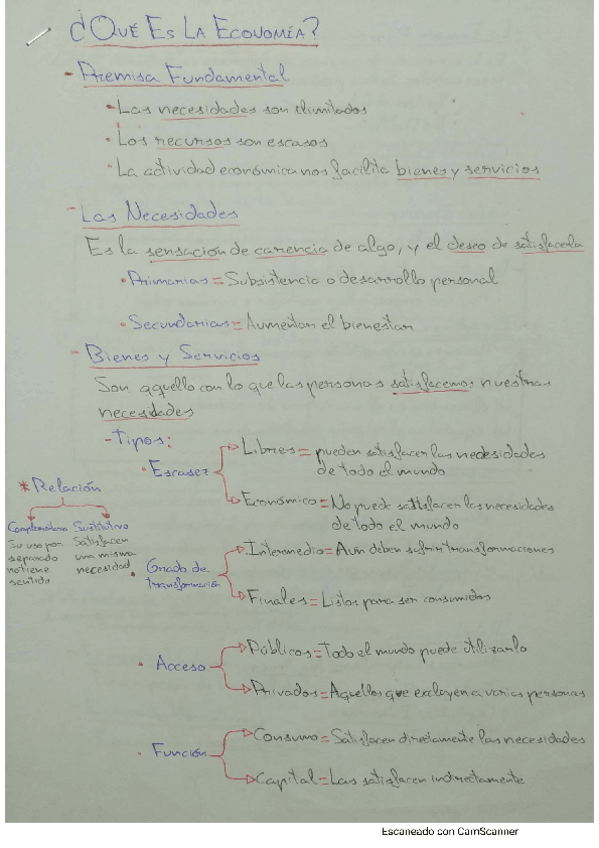 ¿Qué Es La Economía?
- Premisa Fundamental
• Las necesidades son ilimitadas
• Los recursos son escasos
• La actividad económica nos facilita bienes y servicios
- Las Necesidades
Es la sensación de carencia de algo, y el deseo de satisfacerla
• Primarias = Subsistencia o desarrollo personal
• Secundarias = Aumentan el bienestar
- Bienes y Servicios
Son aquello con lo que las personas satisfacemos nuestras
necesidades
- Tipos:
• Escasez
Libres = pueden satisfacer las necesidades
de todo el mundo
Económico = No puede satisfacer las necesidades
de todo el mundo
* Relación
Complementario
Su uso por
separado
no tiene
sentido
Sustitutivo
Satisfacen
una misma
necesidad
• Grado de
transformación
Intermedio = Aún deben sufrir transformaciones
Finales = Listos para ser consumidos
• Acceso
Públicos = Todo el mundo puede utilizarlo
Privados = Aquellos que excluyen a varias personas
• Función
Consumo = Satisfacen directamente las necesidades
Capital = Las satisfacen indirectamente
Escaneado con CamScanner